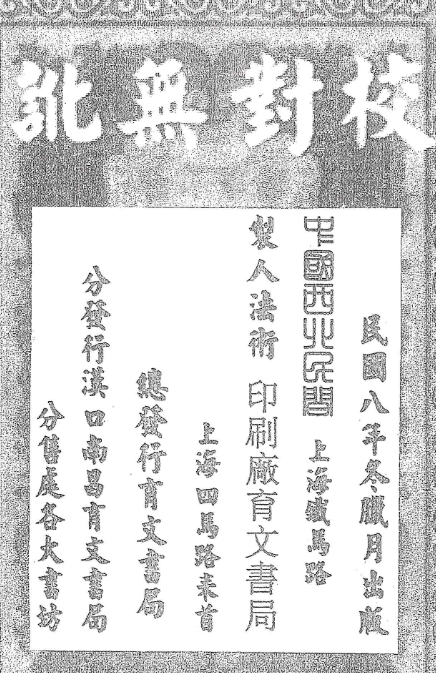 校對無訛
民國八年冬臘月出版
中國西北民間　上海鐵馬路
製人法術　印刷廠育文書局
上海四馬路東首
總發行育文書局
分發行漢口南昌育文書局
分售處各大書坊